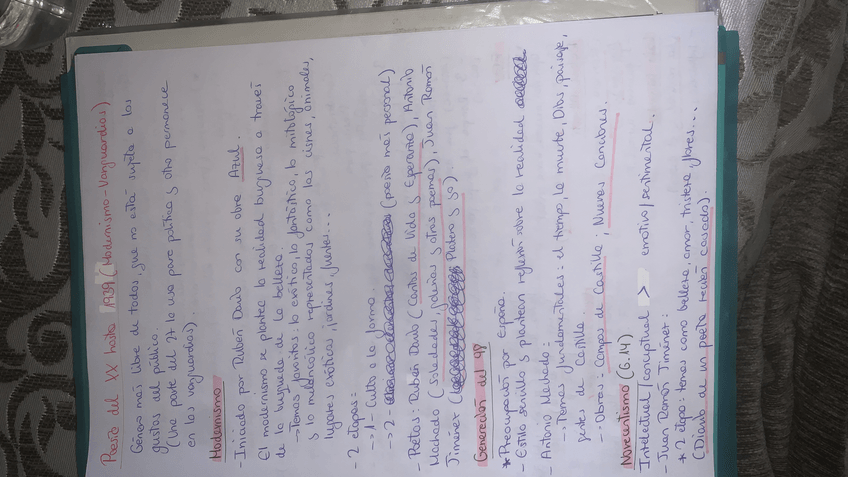 Poesía del XX hasta 1939 (Modernismo-Vanguardias)
Género más libre de todos, que no está sujeto a los
gustos del público.
(Una parte del 27 lo usa para política y otra permanece
en las vanguardias).
Modernismo
- Iniciado por Rubén Darío con su obra Azul.
El modernismo se plantea la realidad burguesa a través
de la búsqueda de la belleza.
→ Temas favoritos: lo exótico, lo fantástico, lo mitológico
y lo melancólico representados como los cisnes, animales,
lugares exóticos, jardines, fuentes...
- 2 etapas:
→ 1- Culto a la forma.
→ 2- (poesía más personal)
- Poetas: Rubén Darío (Cantos de Vida y Esperanza), Antonio
Machado (Soledades, y otros poemas), Juan Ramón
Jiménez ( Platero y yo).
Generación del 98
* Preocupación por España.
- Estilo sencillo y plantean reflexión sobre la realidad
- Antonio Machado:
- Temas fundamentales: el tiempo, la muerte, Dios, paisaje,
gentes de Castilla.
- Obras: Campos de Castilla, Nuevas Canciones.
Novecentismo (G.14)
Intelectual/conceptual > emotivo/sentimental.
- Juan Ramón Jiménez:
* 2 etapa: temas como belleza, amor, tristeza, flores...
(Diario de un poeta recién casado).